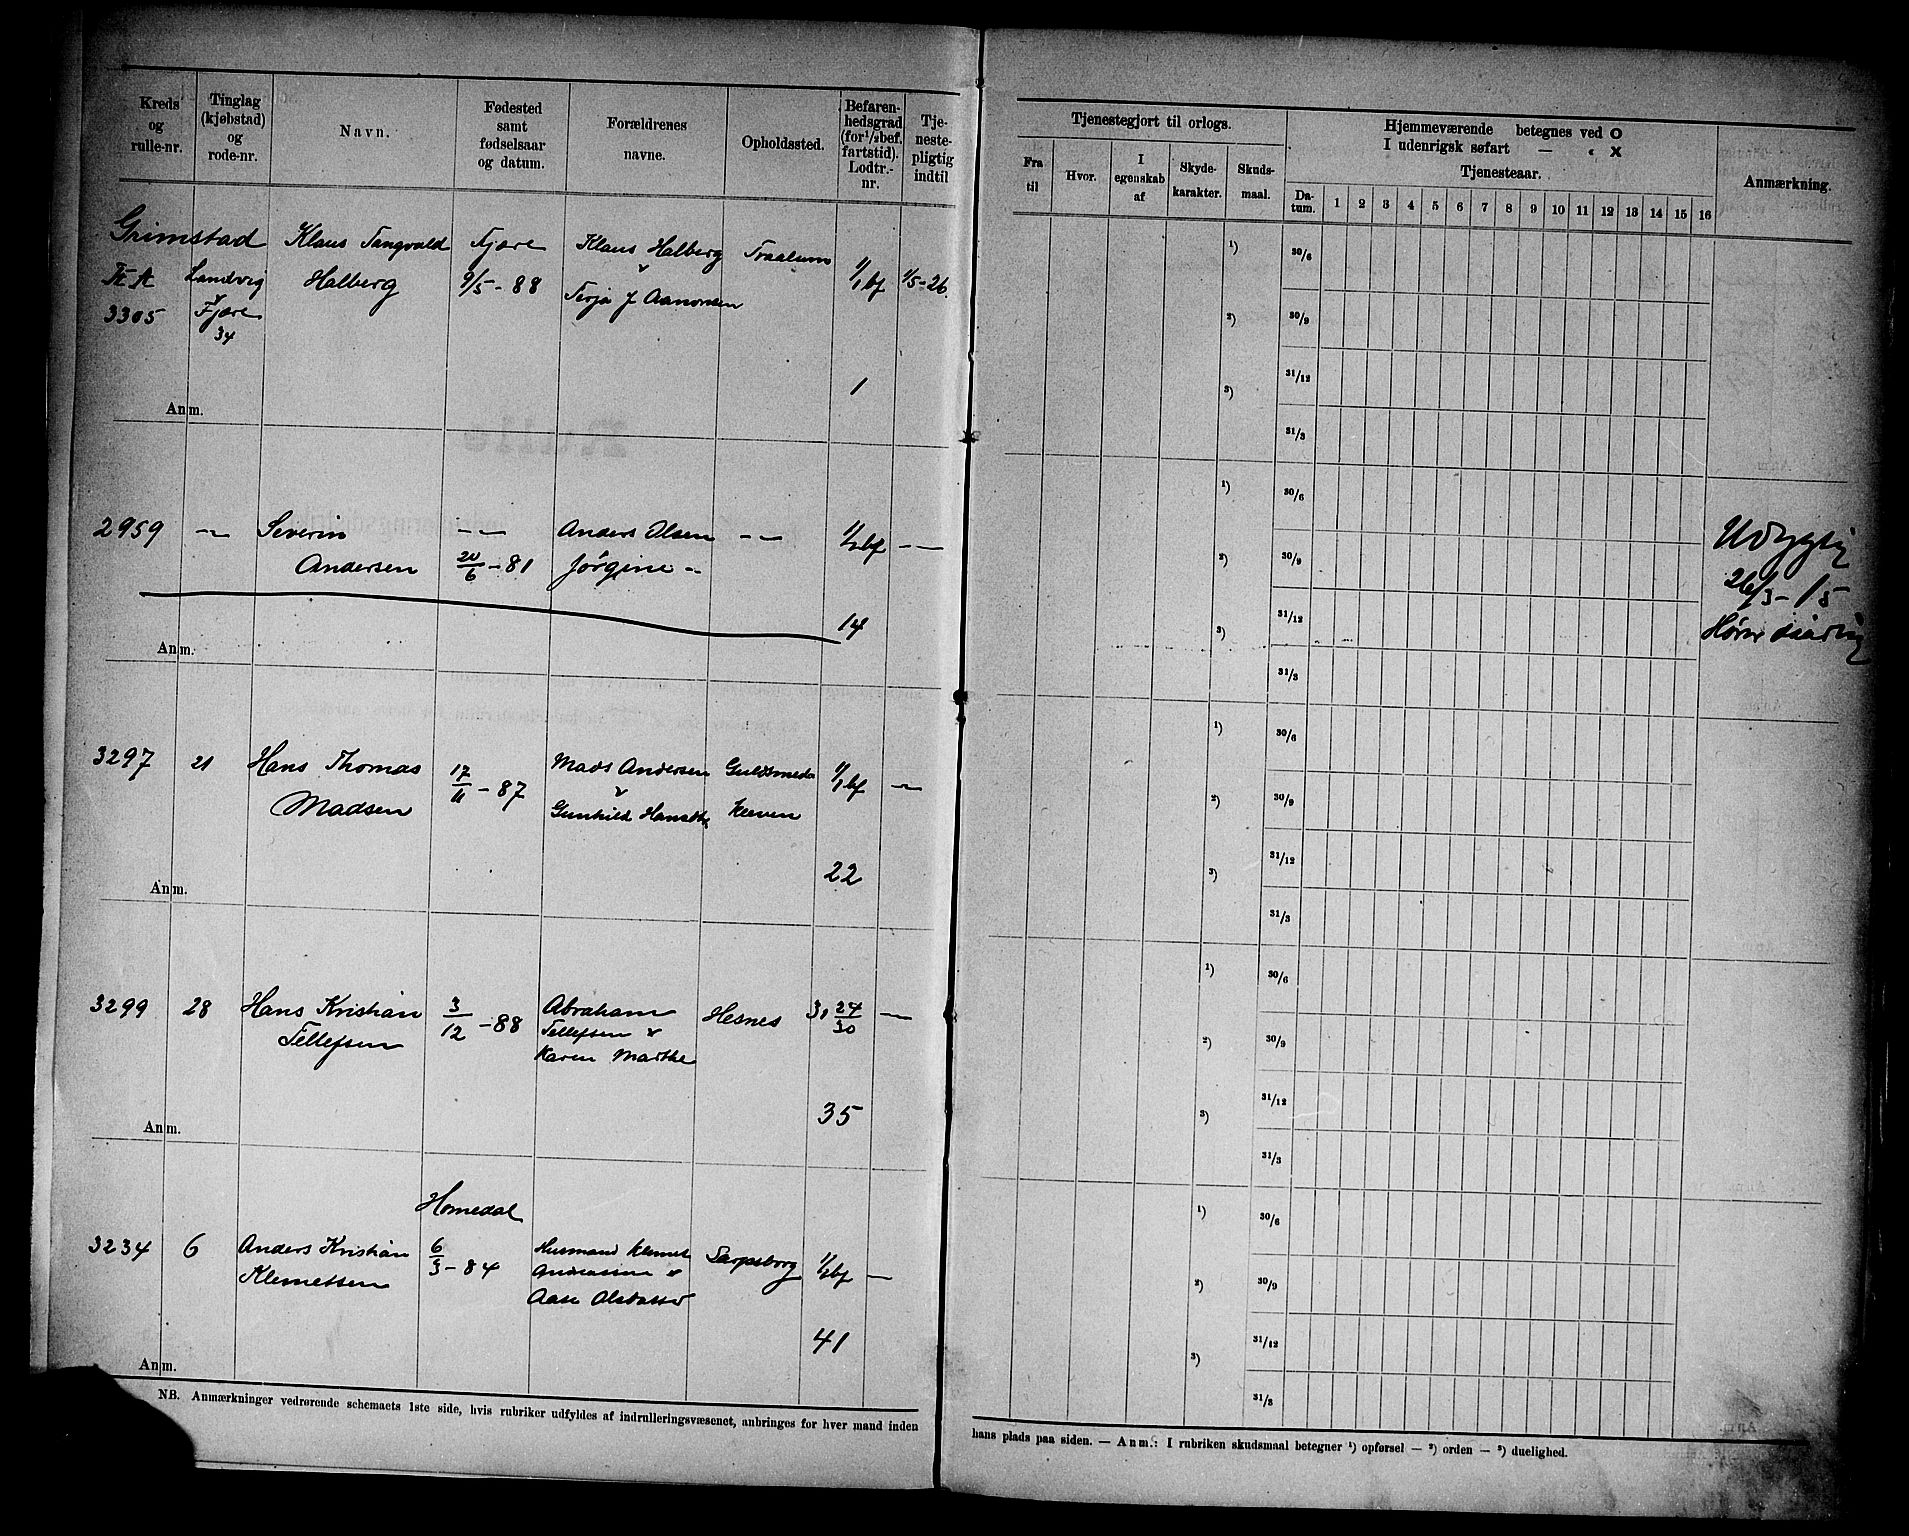 Kreds og rulle-nr.
Tinglag (kjøbstad) og rode-nr.
Navn.
Fødested samt fødselsaar og datum.
Forældrenes navne.
Opholdssted.
Befaren-hedsgrad (for 1/2 bef. fartstid). Lodtr.-nr.
Tje-neste-pligtig indtil
Tjenestegjort til orlogs.
Fra til
Hvor.
I egenskab af
Skyde-karakter.
Skuds-maal.
Hjemmeværende betegnes ved O
I udenrigsk søfart — « X
Tjenesteaar.
Da-tum.
1 2 3 4 5 6 7 8 9 10 11 12 13 14 15 16
Anmærkning.
Grimstad
3305
Landvig
Fjære
34
Klaus Tangvald
Halberg
Fjære
9/5 - 88
Klaus Halberg
Terja J Aanonsen
1/1 bf
1/5-26.
1
Anm.
1) 30/6
2) 30/9
3) 31/12
31/3
2959
-"-
Severin
Andersen
-"-
20/6 - 81
Anders Olsen
Jørgine -"-
-"-
1/2 bf
-"-
14
Anm.
1) 30/6
2) 30/9
3) 31/12
31/3
Udygtig
26/3-15
3297
21
Hans Thomas
Madsen
17/11 - 87
Mads Andersen
Gunhild
Guldsmed
1/1 bf
-"-
22
Anm.
1) 30/6
2) 30/9
3) 31/12
31/3
3299
28
Hans Kristian
Tellefsen
3/12 - 88
Abraham
Tellefsen v
Karen Marthe
Hesnes
3, 24/30
-"-
35
Anm.
1) 30/6
2) 30/9
3) 31/12
31/3
3234
6
Anders Kristian
Klemetsen
Homedal
6/3 - 84
Husmand Klemet
Andreassen v
Aase
Sarpsborg
1/2 bf
—
41
Anm.
1) 30/6
2) 30/9
3) 31/12
31/3
NB. Anmærkninger vedrørende schemaets 1ste side, hvis rubriker udfyldes af indrulleringsvæsenet, anbringes for hver mand inden
hans plads paa siden. — Anm.: I rubriken skudsmaal betegner 1) opførsel — 2) orden — 3) duelighed.